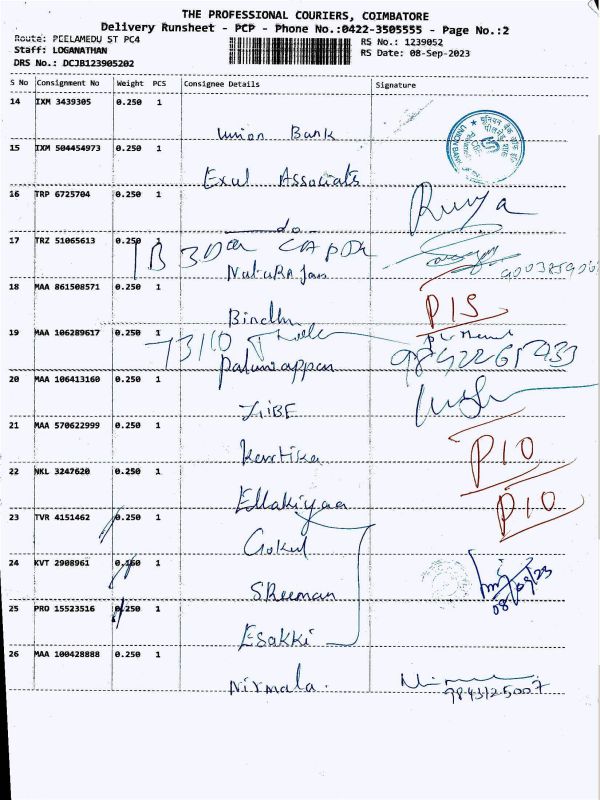 THE PROFESSIONAL COURIERS, COIMBATORE
Delivery Runsheet - PCP - Phone No.:0422-3505555 - Page No.:2
Route: PEELAMEDU ST PC4
RS No.: 1239052
Staff: LOGANATHAN
RS Date: 08-Sep-2023
DRS No.: DCJB123905202
S No Consignment No Weight PCS Consignee Details Signature
14 IXM 3439305 0.250 1
Union Bank
15 IXM 504454973 0.250 1
Exul Associats
16 TRP 6725704 0.250 1
do
17 TRZ 51065613 0.250 1
18 MAA 861508571 0.250 1
Bindhu
P/S
19 MAA 106289617 0.250 1
Palaniappan
20 MAA 106413160 0.250 1
21 MAA 570622999 0.250 1
Kartika
P10
22 NKL 3247620 0.250 1
Ellakiyaa
P10
23 TVR 4151462 0.250 1
Gokul
24 KVT 2908961 0.160 1
Sreeman
08/09/23
25 PRO 15523516 0.250 1
Esakki
26 MAA 100428888 0.250 1
Nirmala
9843125007